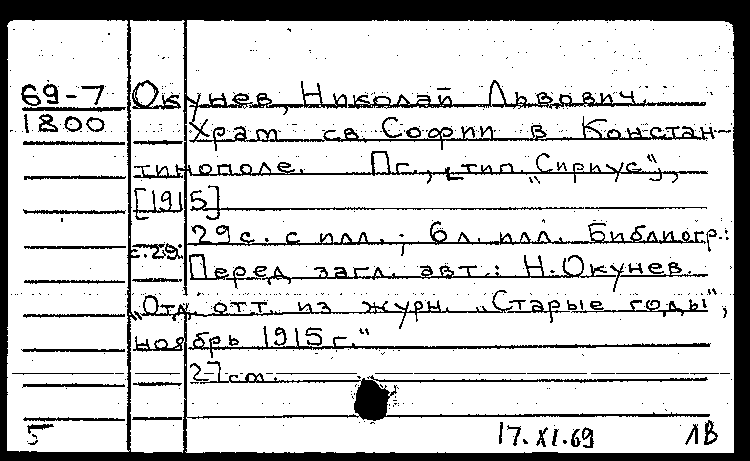 69-7 Окунев, Николай Львович.
1800 Храм св. Софии в Констан-
тинополе. Пг., [тип. „Сириус"],
[1915]
29 с. с илл.; 6 л. илл. Библиогр.:
с. 29.
Перед загл. авт.: Н. Окунев.
„Отд. отт. из журн. „Старые годы",
ноябрь 1915 г."
27 см.
5 17.XI.69 ЛВ